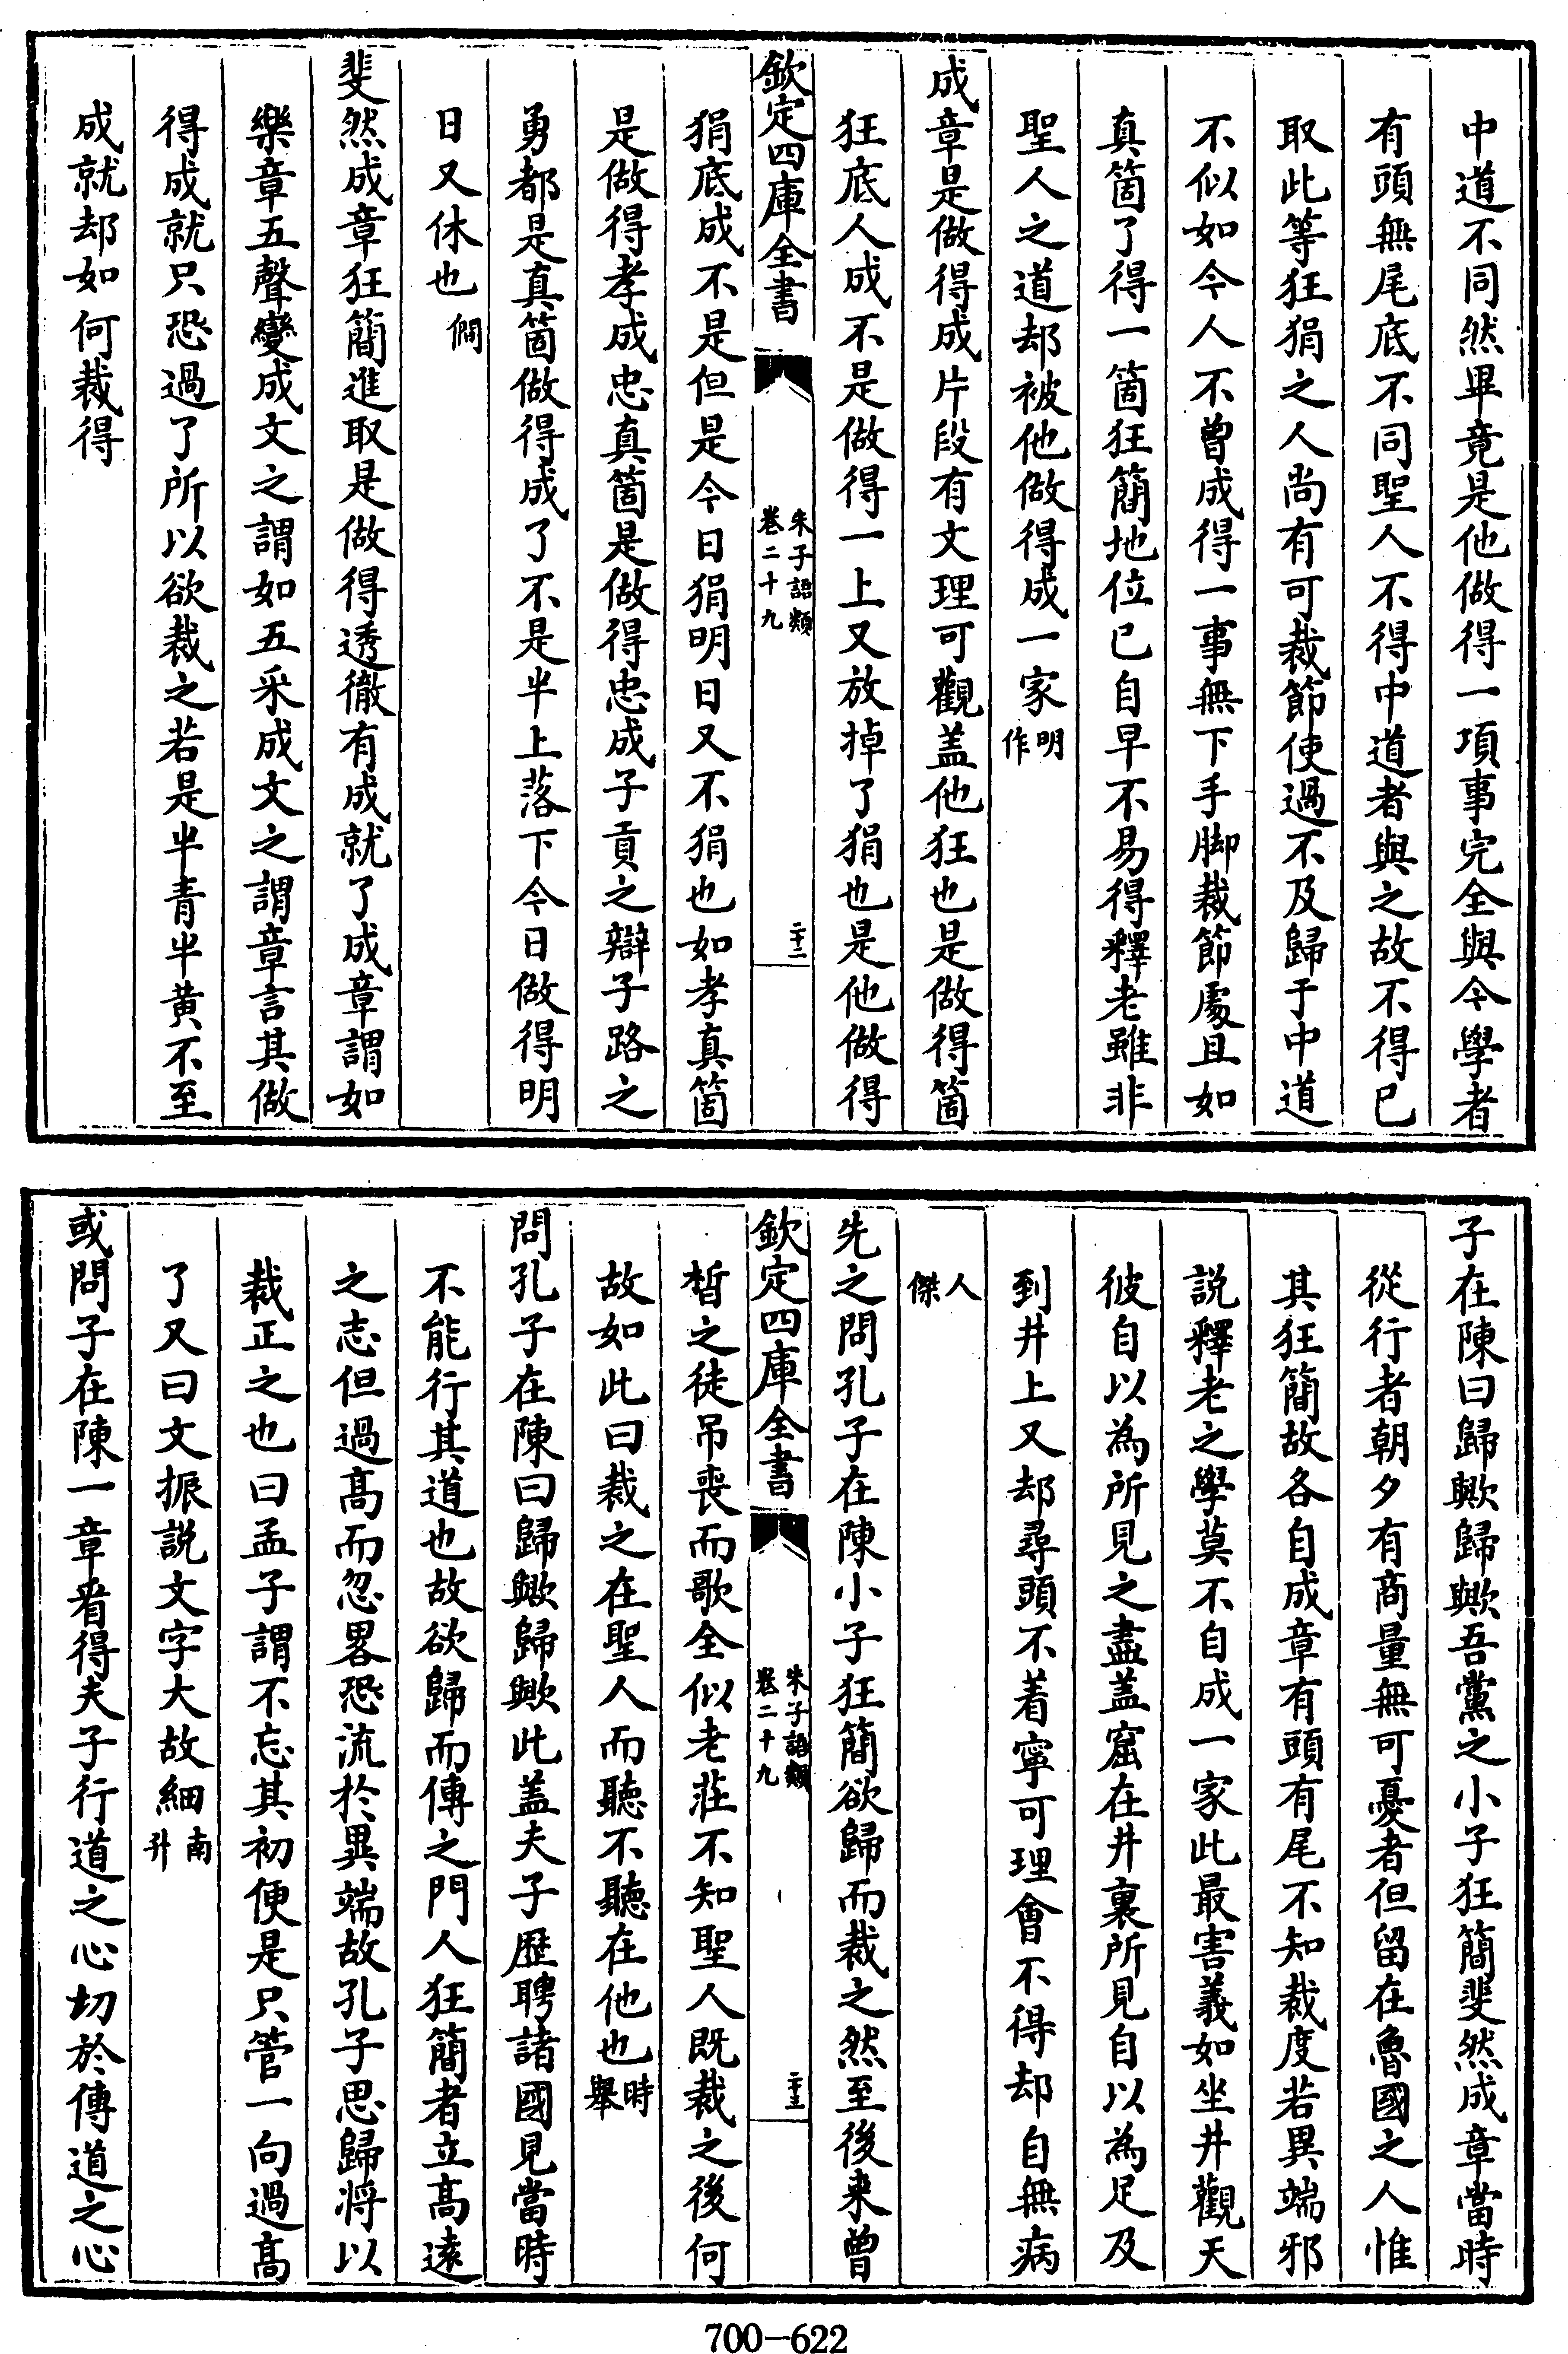 中道不同然畢竟是他做得一項事完全與今學者
有頭無尾底不同聖人不得中道者與之故不得已
取此等狂狷之人尚有可裁節使過不及歸于中道
不似如今人不曾成得一事無下手脚裁節處且如
真箇了得一箇狂簡地位已自早不易得釋老雖非
聖人之道却被他做得成一家明作
成章是做得成片段有文理可觀盖他狂也是做得箇
狂底人成不是做得一上又放掉了狷也是他做得
欽定四庫全書 朱子語類卷二十九 二十二
狷底成不是但是今日狷明日又不狷也如孝真箇
是做得孝成忠真箇是做得忠成子貢之辯子路之
勇都是真箇做得成了不是半上落下今日做得明
日又休也僩
斐然成章狂簡進取是做得透徹有成就了成章謂如
樂章五聲變成文之謂如五采成文之謂章言其做
得成就只恐過了所以欲裁之若是半青半黄不至
成就却如何裁得
子在陳曰歸歟歸歟吾黨之小子狂簡斐然成章當時
從行者朝夕有商量無可憂者但留在魯國之人惟
其狂簡故各自成章有頭有尾不知裁度若異端邪
説釋老之學莫不自成一家此最害義如坐井觀天
彼自以為所見之盡盖窟在井裏所見自以為足及
到井上又却尋頭不着寧可理會不得却自無病
人傑
先之問孔子在陳小子狂簡欲歸而裁之然至後来曾
欽定四庫全書 朱子語類卷二十九 二十三
晳之徒吊喪而歌全似老莊不知聖人既裁之後何
故如此曰裁之在聖人而聽不聽在他也時舉
問孔子在陳曰歸歟歸歟此盖夫子歷聘諸國見當時
不能行其道也故欲歸而傳之門人狂簡者立髙逺
之志但過髙而忽畧恐流於異端故孔子思歸將以
裁正之也曰孟子謂不忘其初便是只管一向過髙
了又曰文振説文字大故細南升
或問子在陳一章看得夫子行道之心切於傳道之心
700-622